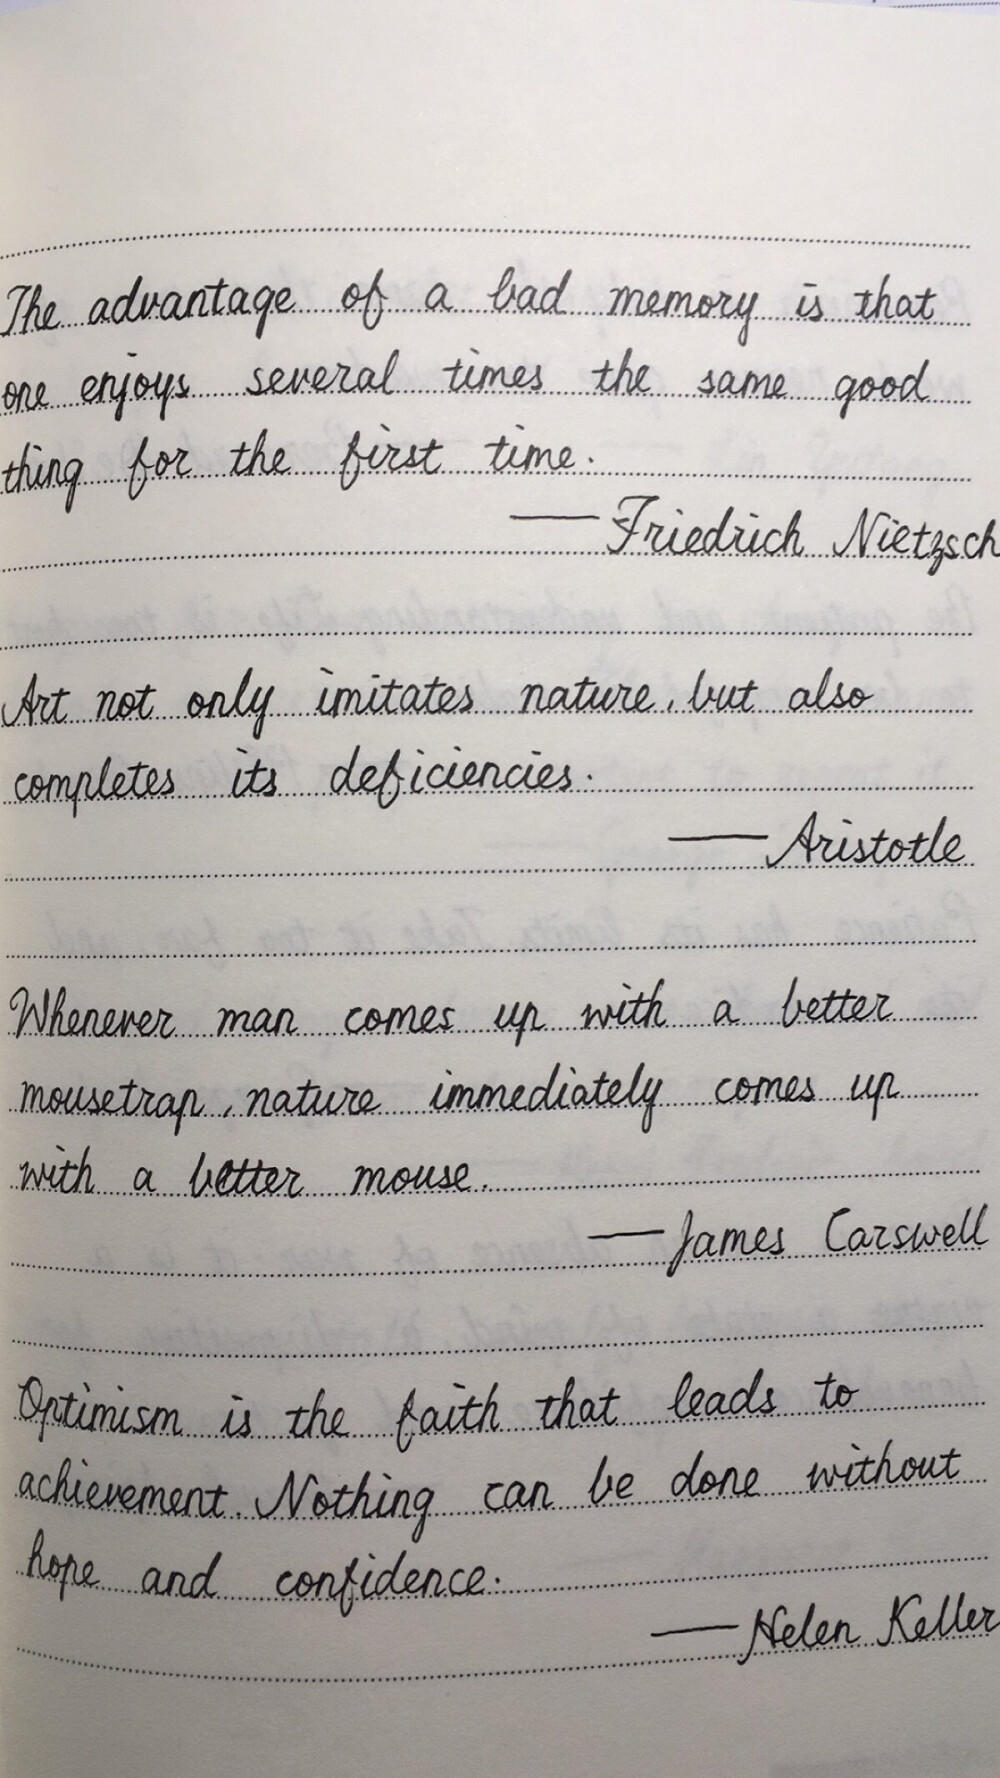 The advantage of a bad memory is that
one enjoys several times the same good
thing for the first time.
—Friedrich Nietzsch
Art not only imitates nature, but also
completes its deficiencies.
—Aristotle
Whenever man comes up with a better
mousetrap, nature immediately comes up
with a better mouse.
—James Carswell
Optimism is the faith that leads to
achievement. Nothing can be done without
hope and confidence.
—Helen Keller